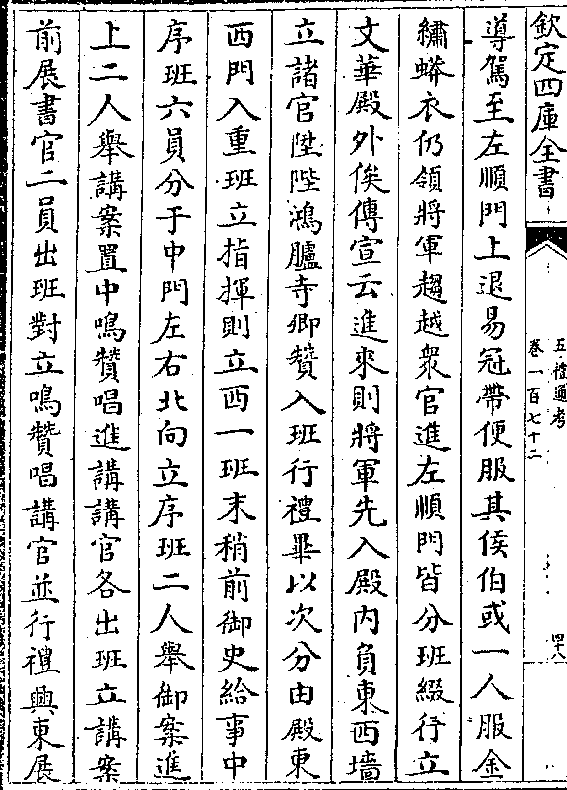 欽定四庫全書
五禮通考
卷一百七十二
四十八
導駕至左順門上退易冠帶便服其侯伯或一人服金
繡蟒衣仍領將軍趨越衆官進左順門皆分班綴行立
文華殿外俟傳宣云進來則將軍先入殿内負東西墻
立諸官陞陛鴻臚寺卿贊入班行禮畢以次分由殿東
西門入重班立指揮則立西一班末稍前御史給事中
序班六員分于中門左右北向立序班二人舉御案進
上二人舉講案置中鳴贊唱進講講官各出班立講案
前展書官二員出班對立鳴贊唱講官並行禮興東展